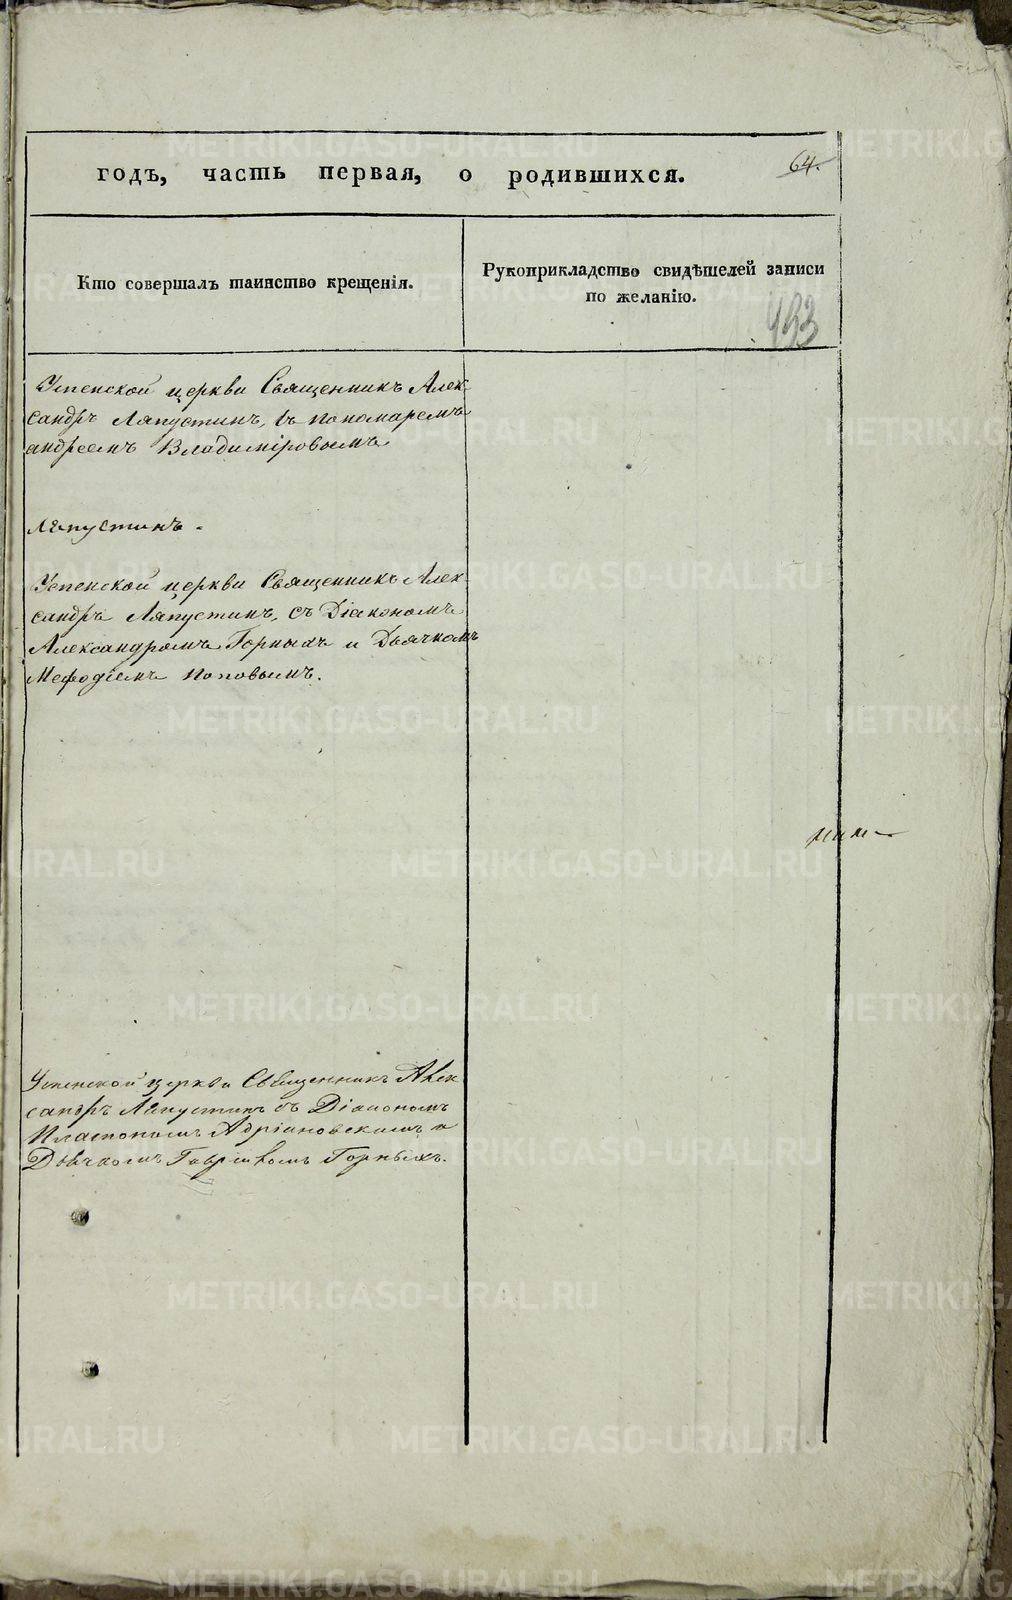 годъ, часть первая, о родившихся.
64.
Кто совершалъ таинство крещенія.
Рукоприкладство свидѣтелей записи
по желанію.
493
Успенской церкви Священникъ Алек-
сандръ Ляпустинъ, съ пономаремъ
андреемъ Владиміровымъ
Ляпустинъ.
Успенской церкви Священникъ Алек-
сандръ Ляпустинъ, съ Діакономъ
Александромъ Горныхъ и Дьячкомъ
Мефодіемъ Поповымъ.
Успенской церкви Священникъ Алек
сандръ Ляпустинъ съ Діакономъ
Платономъ Адріановскимъ и
Дьячкомъ Гавріиломъ Горныхъ.
METRIKI.GASO-URAL.RU